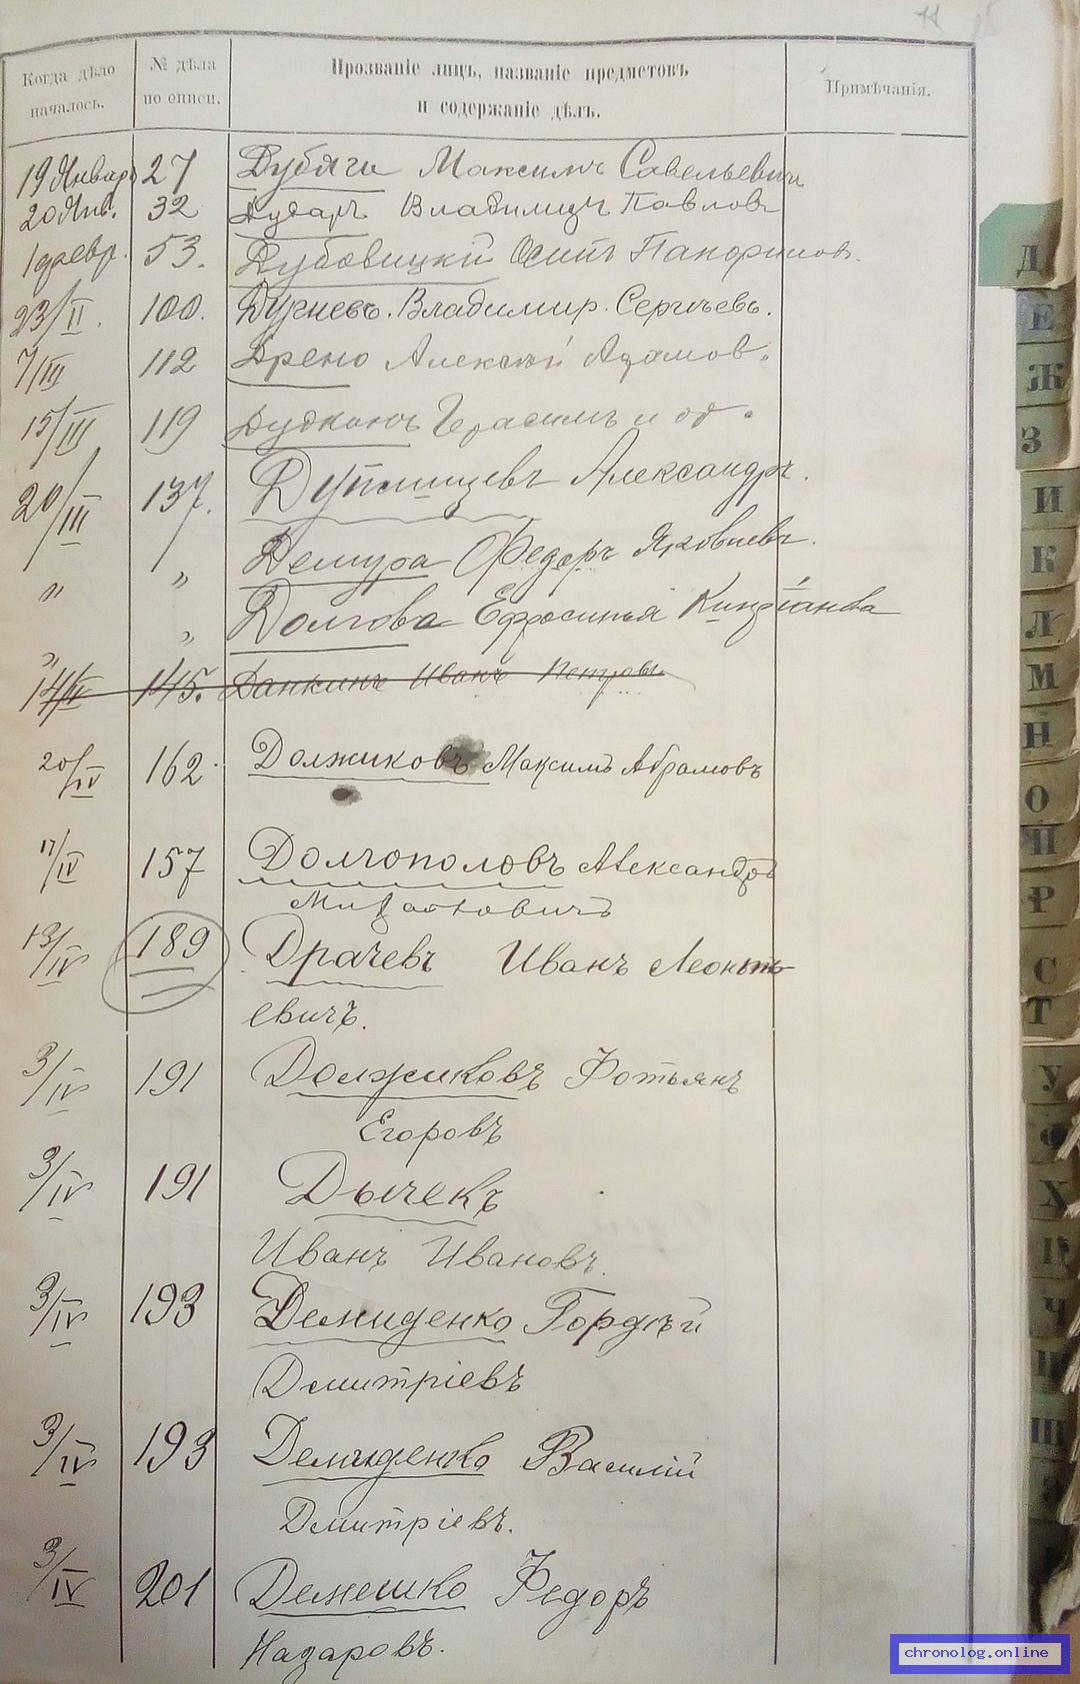 11
Когда дѣло началось.
№ дѣла по описи.
Прозваніе лицъ, названіе предметовъ и содержаніе дѣлъ.
Примѣчанія.
19 Январ 27 Дубяги Максимъ Савельевичъ
20 Янв. 32 Дударъ Владимиръ Павловъ
1 февр. 53. Дубовицкій Осипъ
23/II. 100. Владимир. Сергѣевъ.
7/III 112 Дрено Алексѣй Адамов.
15/III 119 Герасимъ и др.
20/III 137. Александръ.
" " Демура Федоръ Яковлевъ.
" " Долгова Ефросинья
14/IV 145. Данкинъ Иванъ Петровъ.
20/IV 162. Должиковъ Максимъ Абрамовъ
17/IV 157 Долгополовъ Александръ
13/IV 189 Драчевъ Иванъ Леонть
евичъ.
3/IV 191 Должиковъ Фотьянъ
Егоровъ
3/IV 191 Дычекъ
Иванъ Ивановъ.
3/IV 193 Демиденко Гордѣй
Дмитріевъ
3/IV 193 Демиденко Василій
Дмитріевъ.
3/IV 201 Демешко Федоръ
Назаровъ.
Д
Е
Ж
З
И
К
Л
М
Н
О
П
Р
С
Т
У
Ф
Х
Ц
Ч
Ш
Щ
chronolog.online